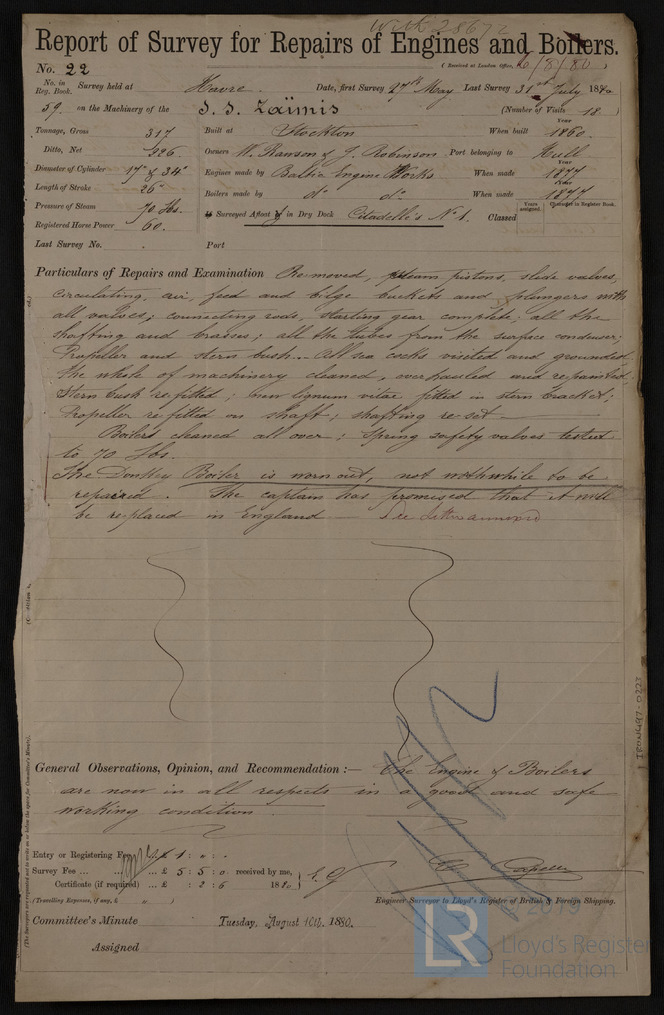 With 28672
Report of Survey for Repairs of Engines and Boilers.
(Received at London Office, 6/8/80)
No. 22
No. in Reg. Book. Survey held at Havre Date, first Survey 27th May Last Survey 31st July 1880
59. on the Machinery of the S.S. Zaïmis (Number of Visits 18)
Tonnage, Gross 317 Built at Stockton When built Year 1860.
Ditto, Net 226. Owners W. Rawson & J. Robinson Port belonging to Hull
Diameter of Cylinder 17" & 34" Engines made by Baltic Engine Works When made Year 1877
Length of Stroke 26" Boilers made by do. do. When made 1877
Pressure of Steam 70 lbs. Surveyed Afloat or in Dry Dock Citadelle's No 1. Classed Years assigned Character in Register Book.
Registered Horse Power 60.
Last Survey No. Port
Particulars of Repairs and Examination Removed, steam pistons, slide valves,
circulating, air, feed and bilge buckets and plungers with
all valves; connecting rods, starting gear complete; all the
shafting and brasses; all the tubes from the surface condenser;
Propeller and stern bush. All sea cocks visited and grounded.
The whole of machinery cleaned, overhauled and repainted.
Stern bush refitted; new lignum vitae fitted in stern bracket;
Propeller refitted on shaft; shafting re set
Boilers cleaned all over; Spring safety valves tested
to 70 lbs.
The Donkey Boiler is worn out, not worthwhile to be
repaired. The captain has promised that it will
be replaced in England See letter annexed
IRON497-0223
General Observations, Opinion, and Recommendation:— The Engine & Boilers
are now in all respects in a good and safe
working condition
Entry or Registering Fee £ 1 : " : "
Survey Fee ... £ 5 : 5 : 0 received by me,
Certificate (if required) ... £ : 2 : 6 1880
(Travelling Expenses, if any, £ )
Engineer Surveyor to Lloyd's Register of British & Foreign Shipping.
Committee's Minute Tuesday, August 10th, 1880.
Assigned
© 2019
LR
Lloyd's Register
Foundation